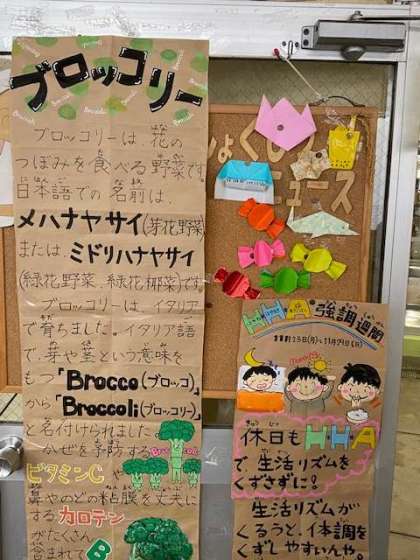 ブロッコリー
ブロッコリーは、花の
つぼみを食べる野菜です。
日本語での名前は
メハナヤサイ(芽花野菜)
または ミドリハナヤサイ
(緑花野菜、緑花椰菜)です。
ブロッコリーは、イタリア
で育ちました。イタリア語
で、芽や茎という意味を
もつ「Brocco(ブロッコ)」
から「Broccoli(ブロッコリー)」
と名付けられました。
かぜを予防する
ビタミンCや
鼻やのどの粘膜を丈夫に
する カロテン
がたくさん
含まれて
ょくし
ニュース
HHA 強調週間
Morning
休日もHHA
で、生活リズムを
くずさずに!
生活リズムが
くるうと、体調を
くずしやすいんや。